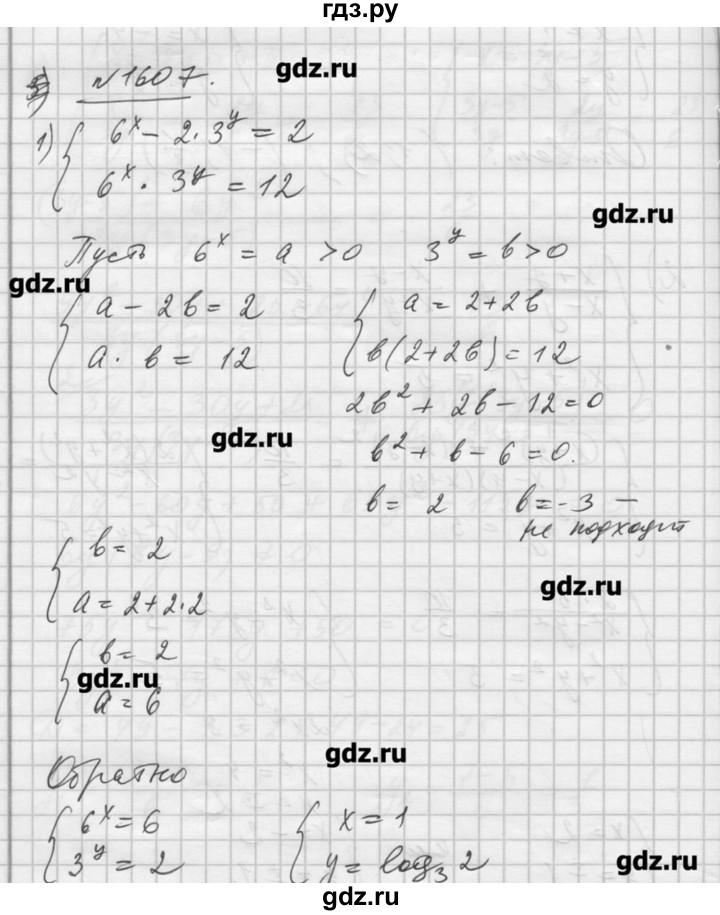 гдз.ру
gdz.ru
№1607.
1) { 6^x - 2·3^y = 2
6^x · 3^y = 12
gdz.ru
Пусть 6^x = a > 0 3^y = b > 0
gdz.ru
{ a - 2b = 2 { a = 2+2b
a · b = 12 b(2+2b) = 12
2b² + 2b - 12 = 0
gdz.ru
b² + b - 6 = 0.
b = 2 b = -3 —
не подходит
{ b = 2
gdz.ru
a = 2+2·2
{ b = 2
gdz.ru
a = 6
gdz.ru
Обратно
{ 6^x = 6 { x = 1
3^y = 2 y = log₃ 2
gdz.ru
gdz.ru